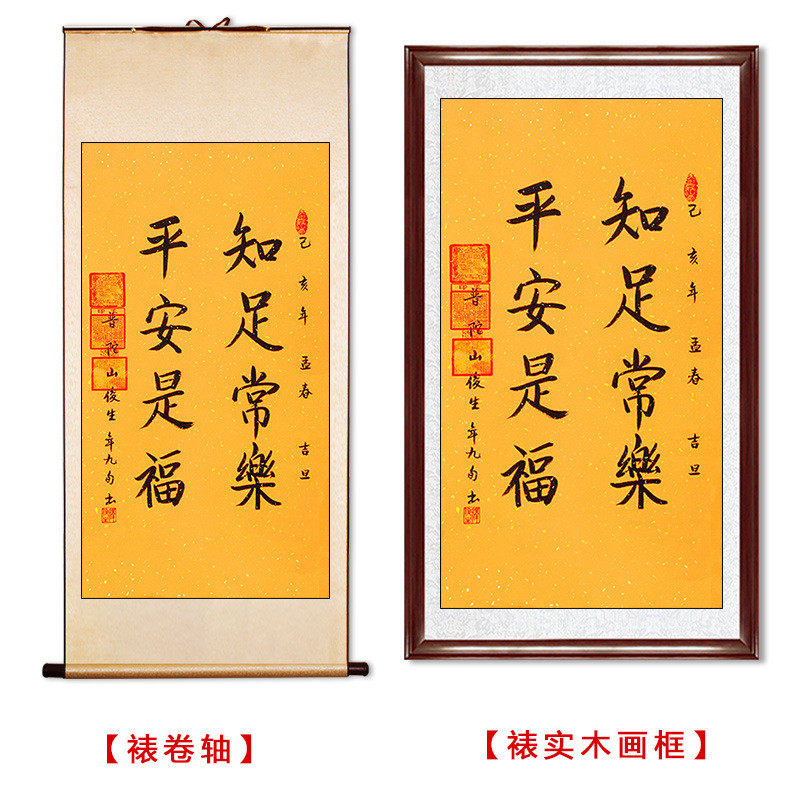 己亥年孟春 吉旦
知足常樂
平安是福
普陀山俊生 年九旬书
己亥年孟春 吉旦
知足常樂
平安是福
普陀山俊生 年九旬书
【裱卷轴】
【裱实木画框】